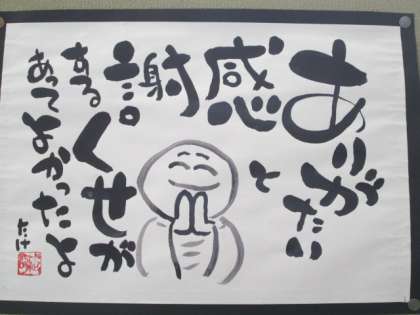 ありがたい
と
感謝
するくせが
あってよかったよ
たけ